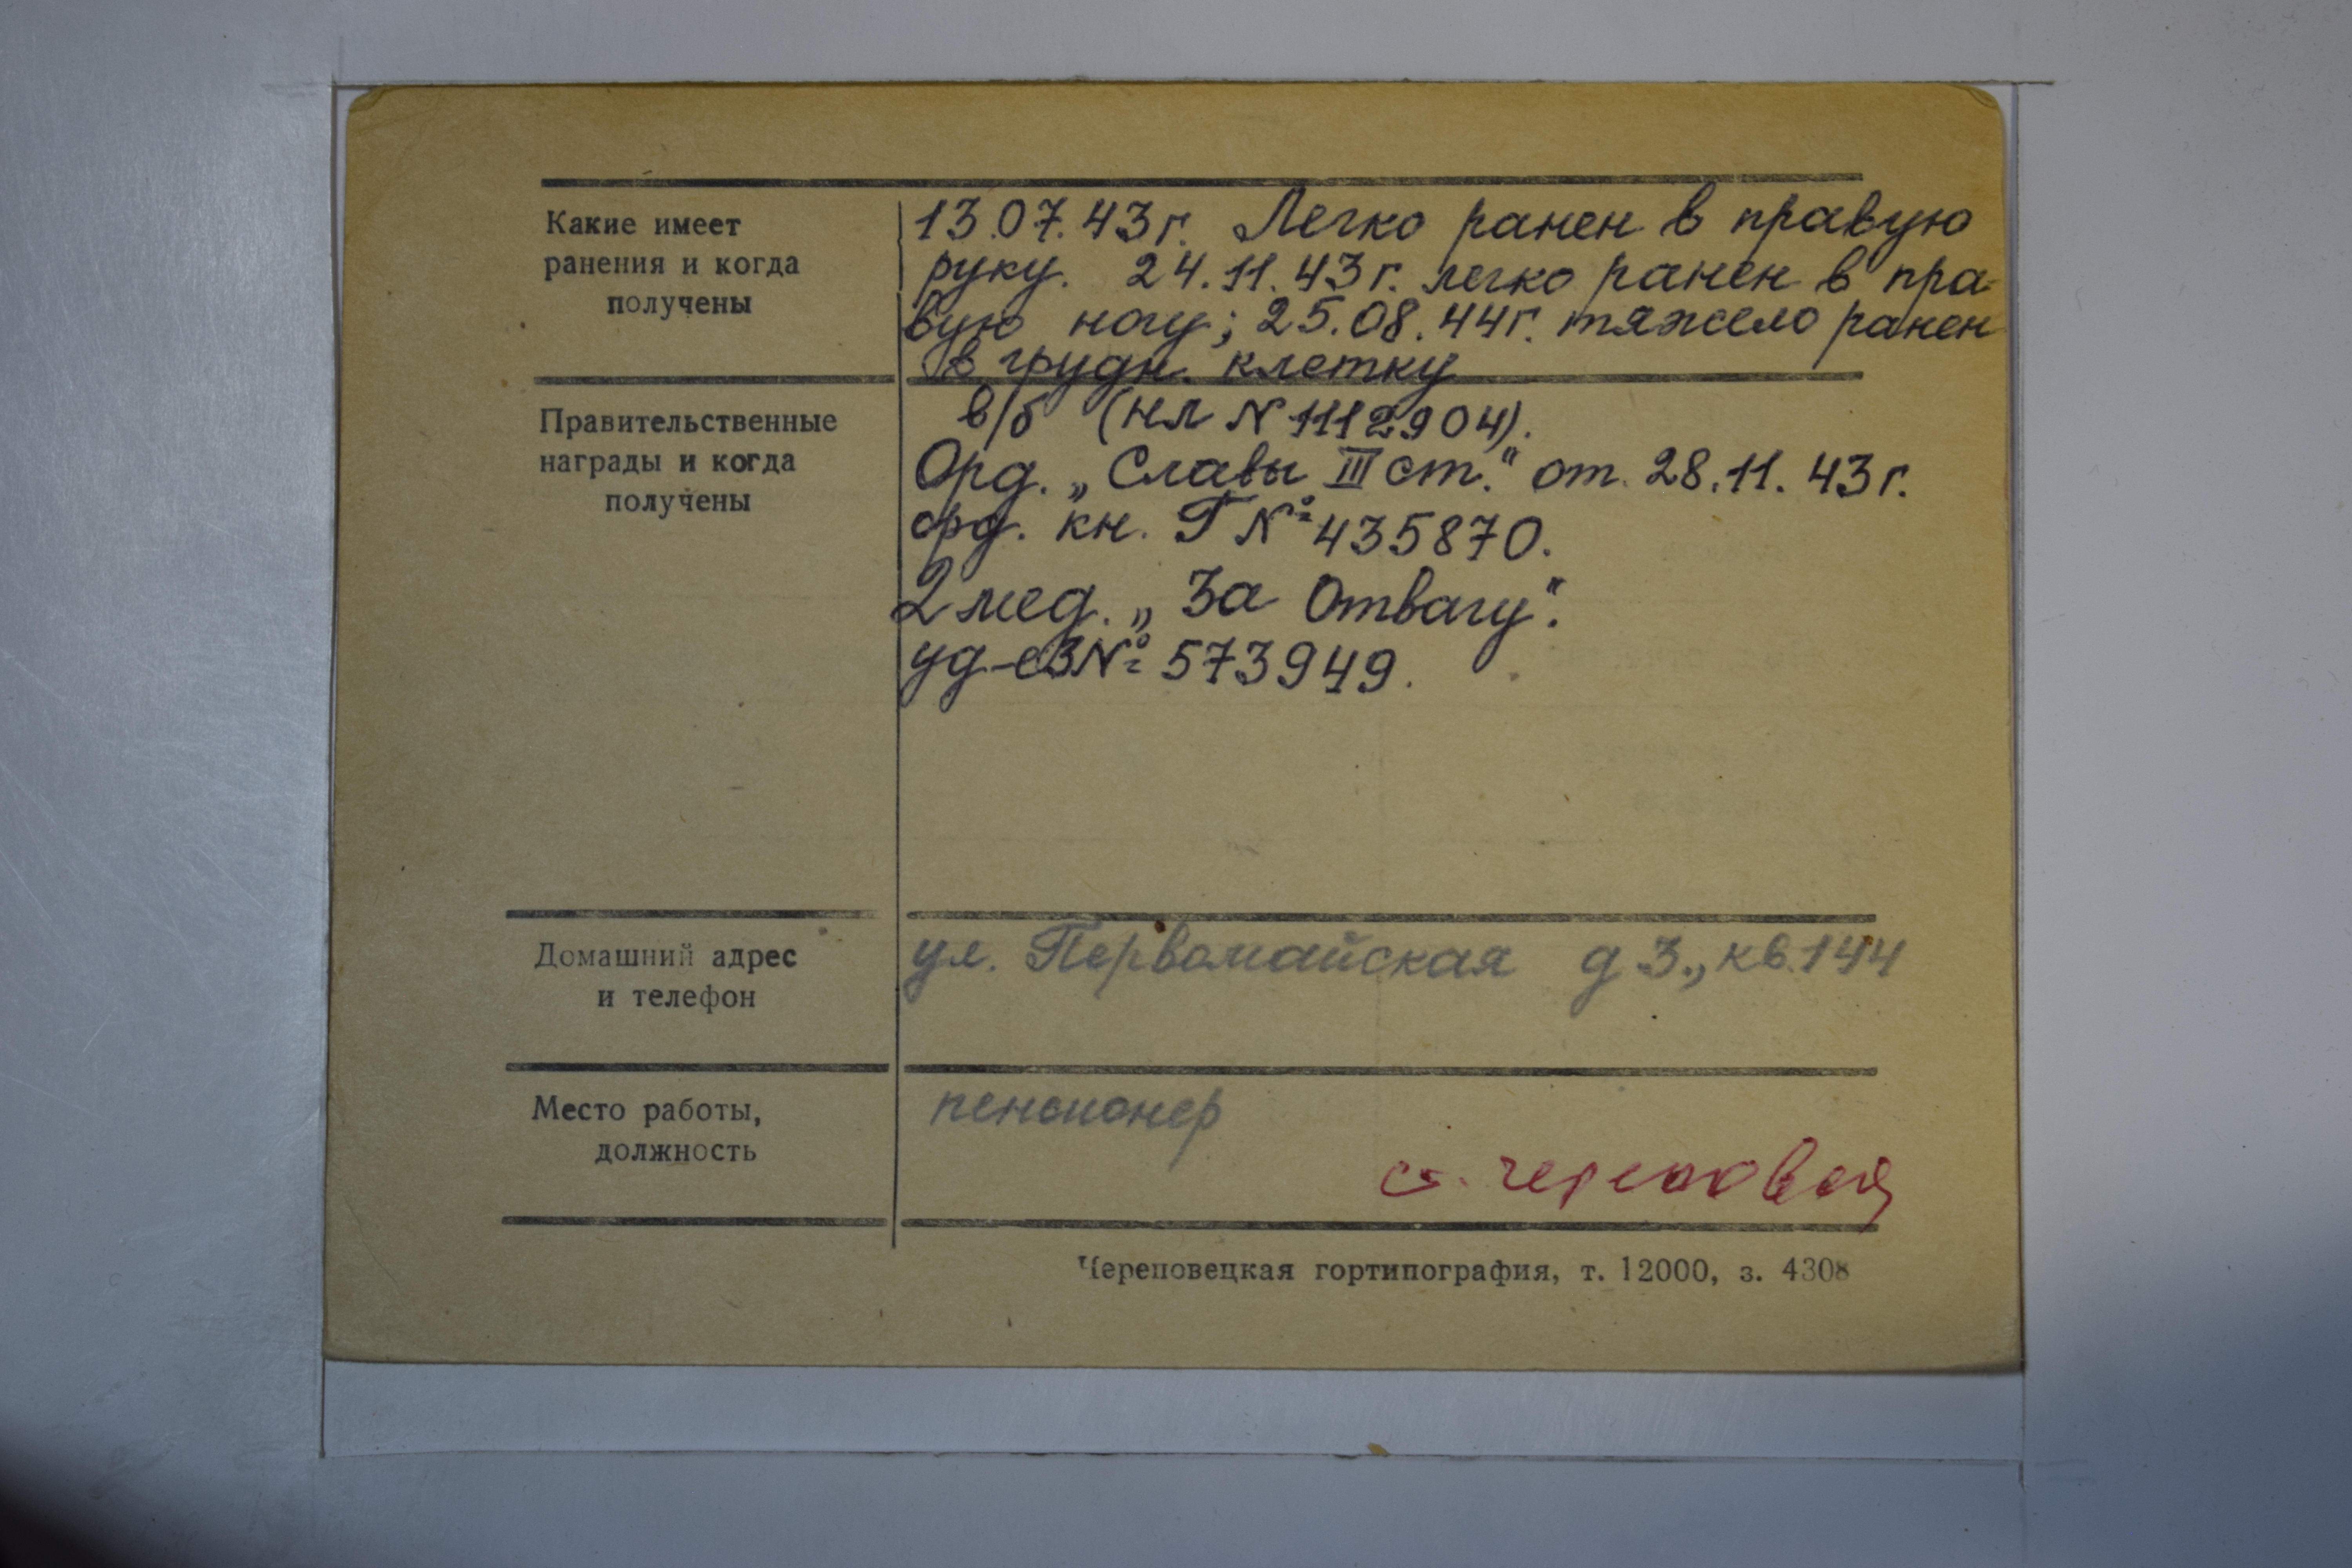 Какие имеет
ранения и когда
получены
13.07.43г. Легко ранен в правую
руку. 24.11.43г. легко ранен в пра-
вую ногу; 25.08.44г. тяжело ранен
в грудн. клетку
Правительственные
награды и когда
получены
в/б (нл N 1112904).
Орд. „Славы III ст." от 28.11.43г.
орд. кн. Г № 435870.
2 мед. „За Отвагу".
уд-е З № 573949.
Домашний адрес
и телефон
ул. Первомайская д 3., кв. 144
Место работы,
должность
пенсионер
Череповецкая гортипография, т. 12000, з. 4308